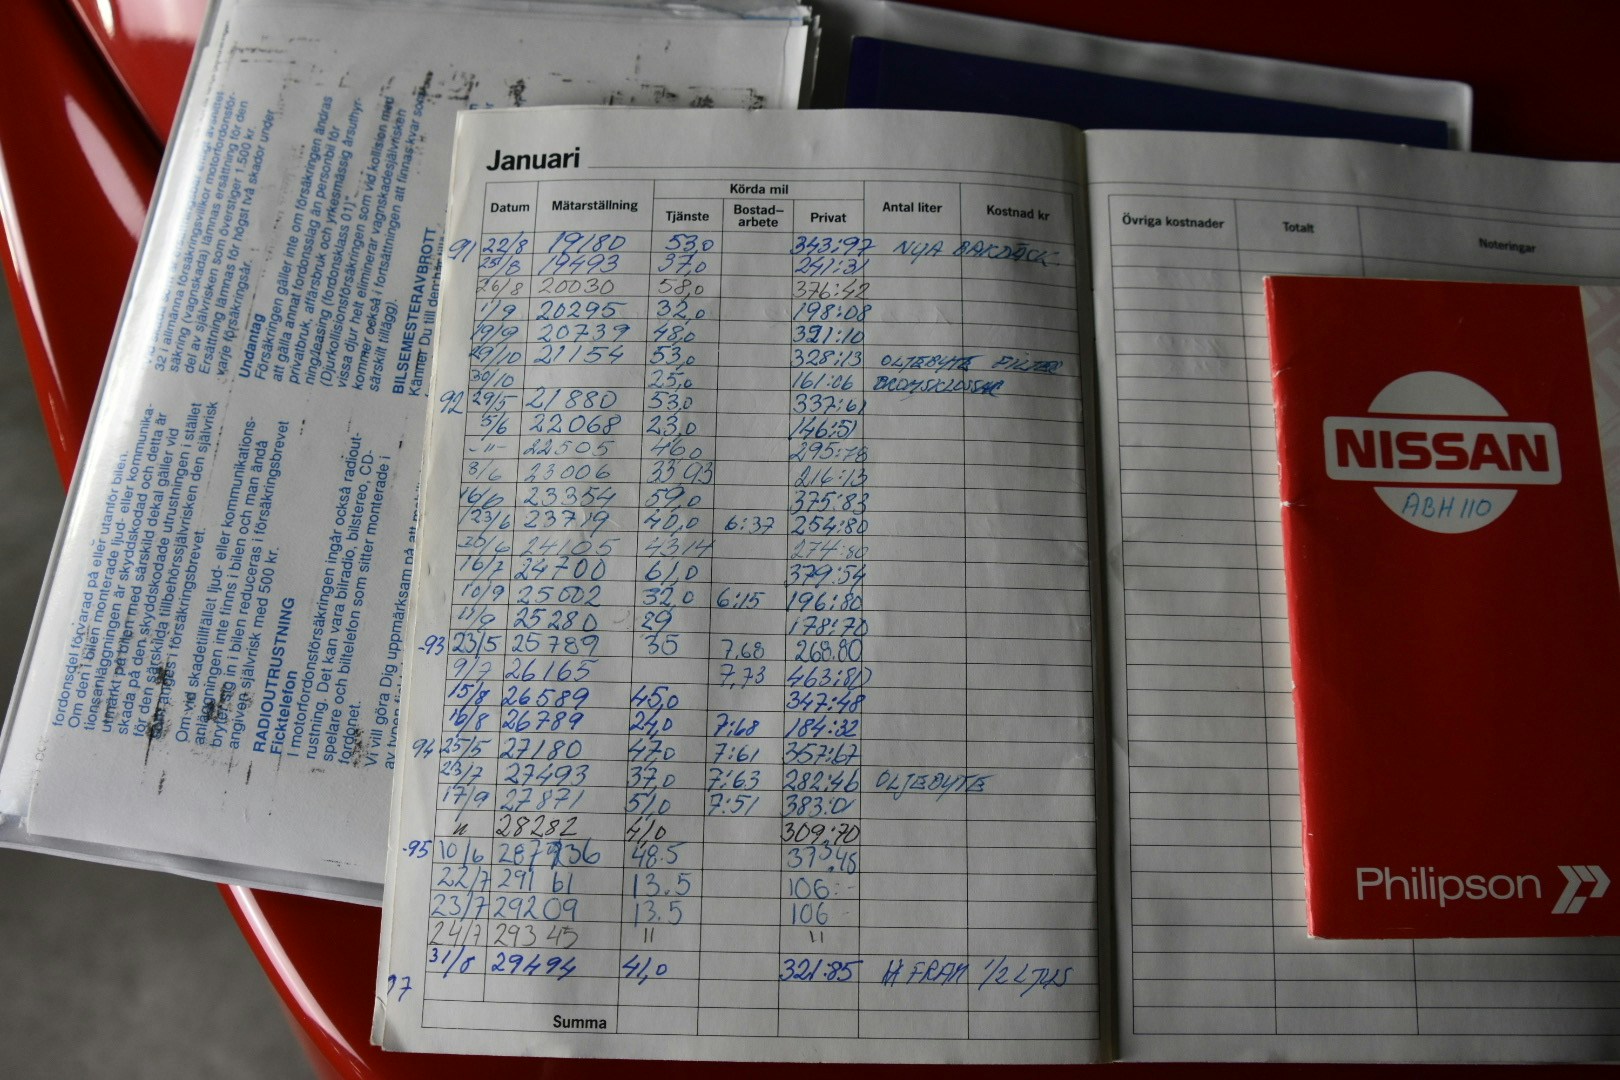 32 i allmänna försäkringsvillkor motorfordonsför-
säkring (vagnskada) lämnas ersättning för den
del av självrisken som överstiger 1.500 kr.
Ersättning lämnas för högst två skador under
varje försäkringsår.
Undantag
Försäkringen gäller inte om försäkringen ändras
att gälla annat fordonsslag än personbil för
privatbruk, affärsbruk och yrkesmässig årsuthyr-
ning/leasing (fordonsklass 01)"
(Djurkollisionsförsäkringen som vid kollision med
vissa djur helt eliminerar vagnskadesjälvrisken
kommer också i fortsättningen att finnas kvar som
särskilt tillägg).
BILSEMESTERAVBROTT
Känner Du till den
fordonsdel förvarad på eller utanför bilen.
Om den i bilen monterade ljud- eller kommunika-
tionsanläggningen är skyddskodad och detta är
utmärkt på bilen med särskild dekal gäller vid
skada på den skyddskodade utrustningen i stället
för den särskilda tillbehörssjälvrisken den självrisk
som anges i försäkringsbrevet.
Om vid skadetillfället ljud- eller kommunikations-
anläggningen inte finns i bilen och man ändå
bryter sig in i bilen reduceras i försäkringsbrevet
angiven självrisk med 500 kr.
RADIOUTRUSTNING
Ficktelefon
I motorfordonsförsäkringen ingår också radiout-
rustning. Det kan vara bilradio, bilstereo, CD-
spelare och biltelefon som sitter monterade i
fordonet.
Vi vill göra Dig uppmärksam på att
Januari
Körda mil
Datum Mätarställning Tjänste Bostad– arbete Privat Antal liter Kostnad kr
91 22/8 19180 53,0 343:97 NYA BAKDÄCK
25/8 19493 37,0 241:31
26/8 20030 58,0 376:42
1/9 20295 32,0 198:08
19/9 20739 48,0 321:10
29/10 21154 53,0 328:13 OLJEBYTE FILTER
30/10 25,0 161:06
92 29/5 21880 53,0 337:61
5/6 22068 23,0 146:51
-"- 22505 46,0 295:78
8/6 23006 33 93 216:13
16/6 23354 59,0 375:83
23/6 23719 40,0 6:37 254:80
24105 4314 274:80
16/7 24700 61,0 379:54
10/9 25002 32,0 6:15 196:80
11/9 25280 29 178:70
-93 23/5 25789 35 7,68 268.80
9/7 26165 7,73 463:80
15/8 26589 45,0 347:48
16/8 26789 24,0 7:68 184:32
94 25/5 27180 47,0 7:61 357:67
23/7 27493 37,0 7:63 282:46 OLJEBYTE
17/9 27871 51,0 7:51 383:01
" 28282 41,0 309:70
-95 10/6 48.5 373.48
22/7 29161 13.5 106:-
23/7 29209 13.5 106
24/7 29345 " "
31/8 29494 41,0 321:85 H FRAM 1/2 LJUS
97
Summa
Övriga kostnader Totalt Noteringar
NISSAN
ABH 110
Philipson